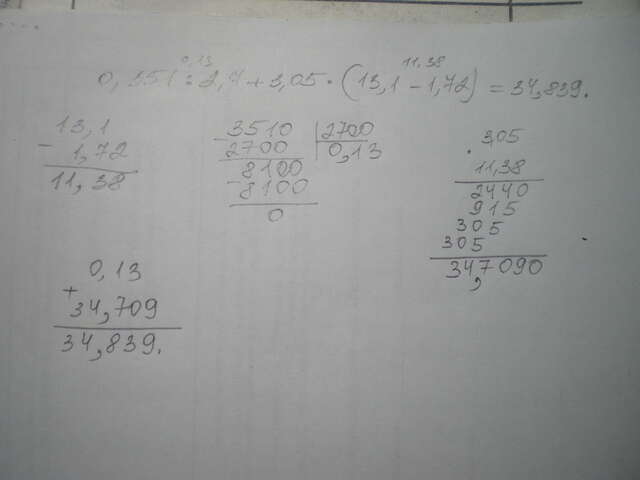 0,13 11,38
0,351 : 2,7 + 3,05 · (13,1 - 1,72) = 34,839.
13,1
- 1,72
11,38
- 3510 | 2700
2700 0,13
- 8100
8100
0
3,05
· 11,38
2440
915
305
305
34,7090
0,13
+ 34,709
34,839.